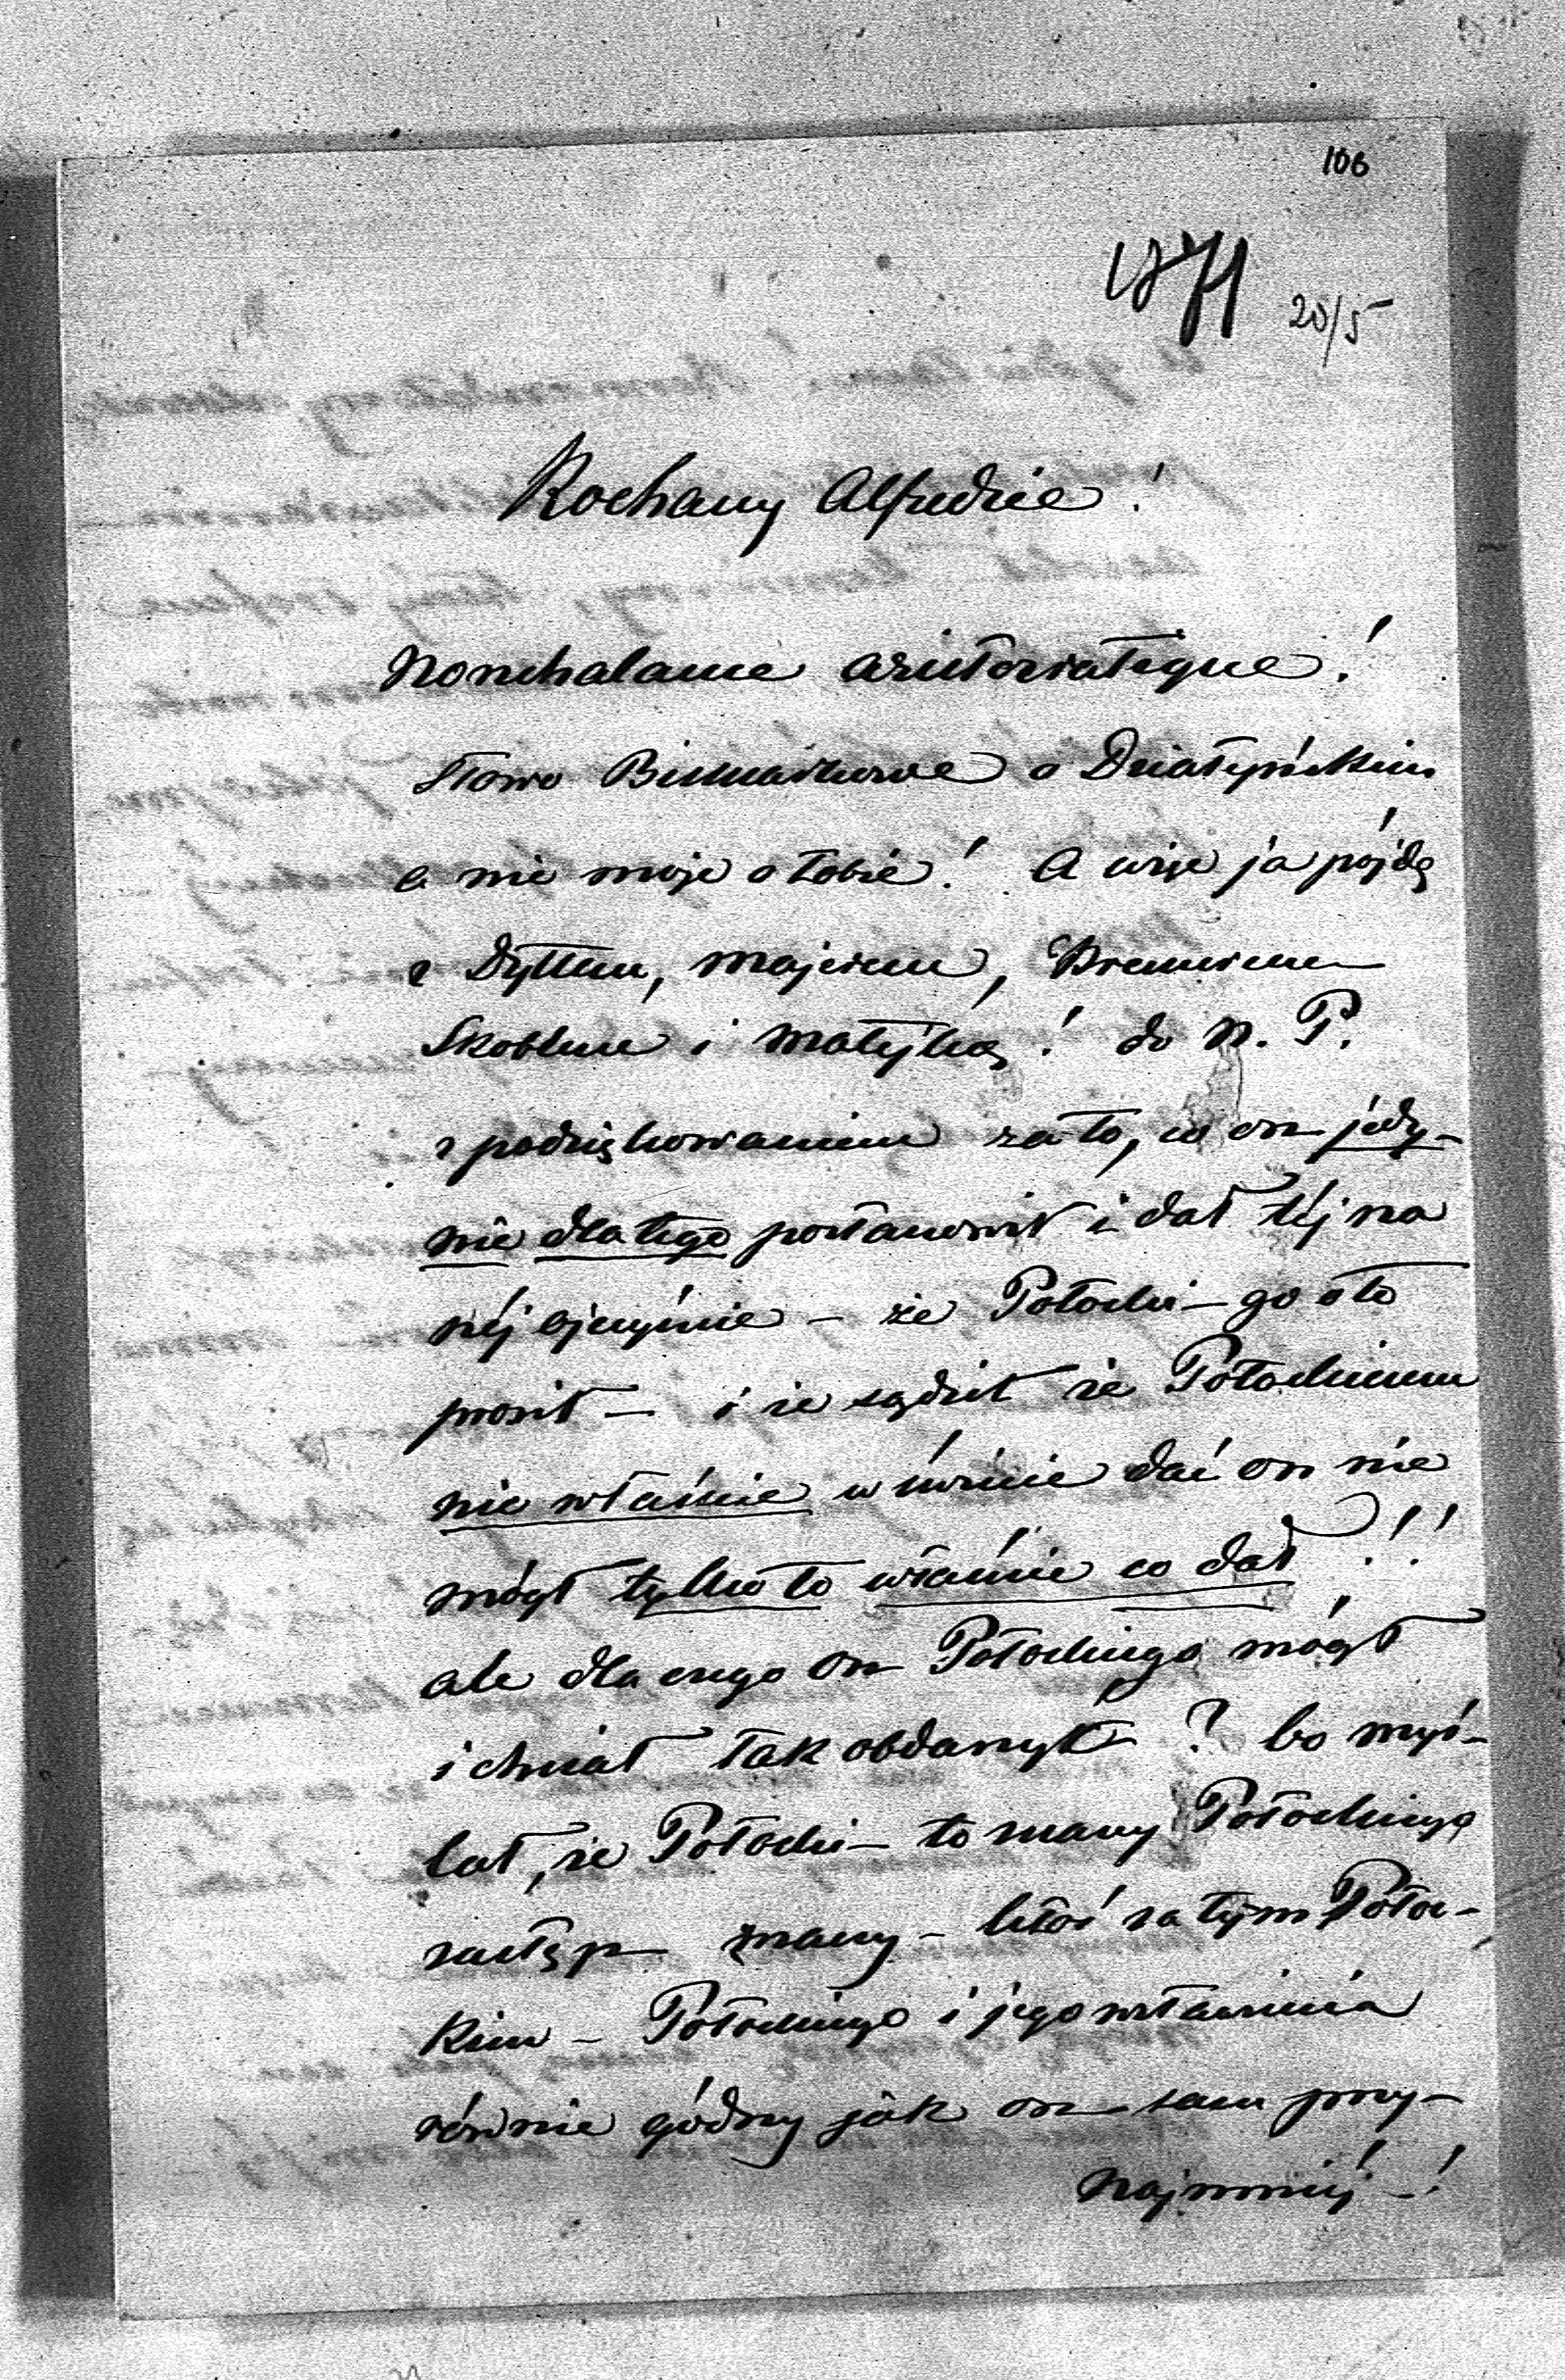 106
1871 20/5
Kochany Alfredzie!
Nonchalance aristocratique!
Słowo Bismarkowe o Działyńskim
a nie moje o tobie! A więc ja pójdę
z Dytlem, Majerem,
Skoblem i Matejką! do N. P.
z podziękowaniem za to, co on jedy-
nie dla tego postanowił i dał téj na
széj ojczyźnie – że Potocki – go o to
prosił – i że sądził że Potockiemu
nic właśnie w świecie dać on nie
mógł tylko to właśnie co dał!!
ale dla czego on Potockiego mógł
i chciał tak obdarzyć? bo myś-
lał, że Potocki – to mamy Potockiego
zastęp mamy – ktoś za tym Potoc-
kim – Potockiego i jego
równie godny jak on sam przy-
najmniéj –!